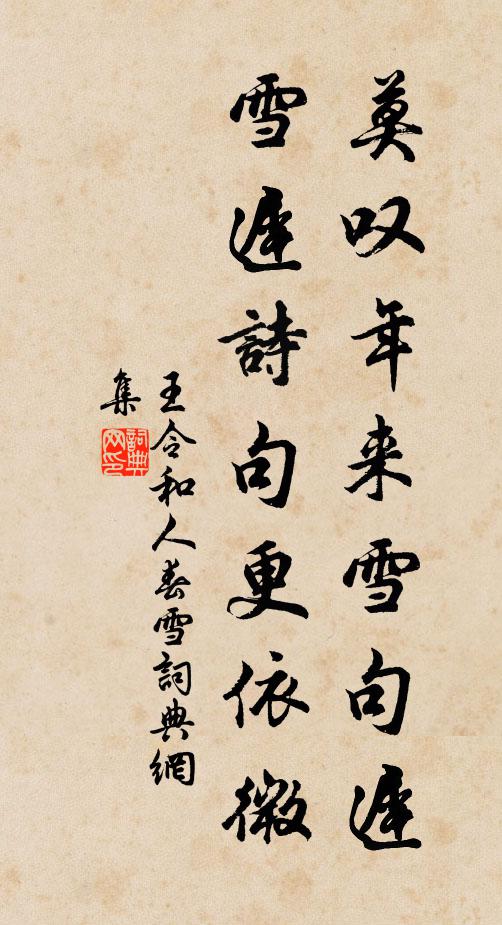 莫叹年来雪句遲
雪遲詩句更依微
王令和人春雪詞典網
集
詞典
网印